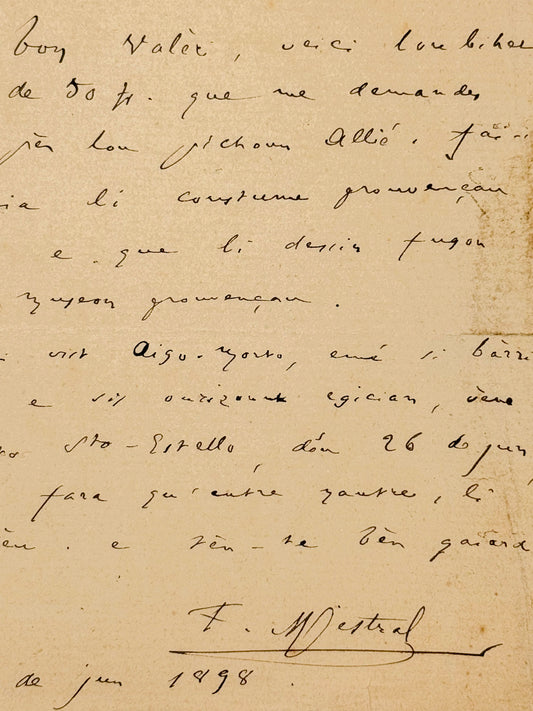 bon Valèri, veici lou bihet
de 50 fr. que me demandes
pèr lou pichoun Allié. Fai-
li coustume prouvençau
e que li dessin fugon
museon prouvençau.
vist Aigo-Morto, emé si bàrri
e sis ourizount egician, vène
Sto-Estello, dóu 26 de jun,
fara qu'entre nautre, li
e tèn-te bèn gaiard
F. Mistral
de jun 1898.